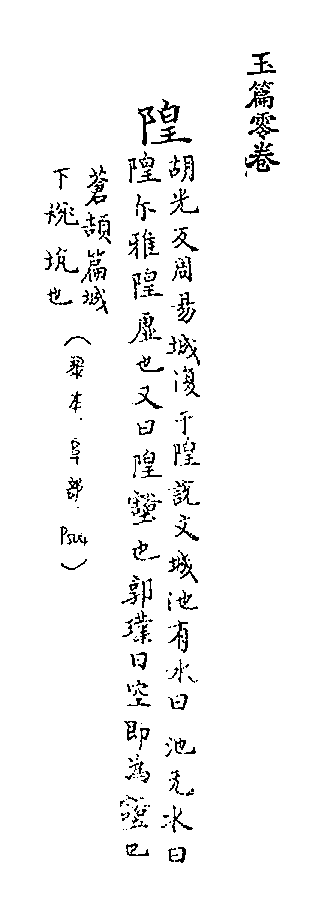 玉篇零卷
隍
胡光反周易城復于隍說文城池有水曰池无水曰
隍尔雅隍虛也又曰隍壑也郭璞曰空即為壑也
蒼頡篇城
下坑也
(黎本 阜部 P504)